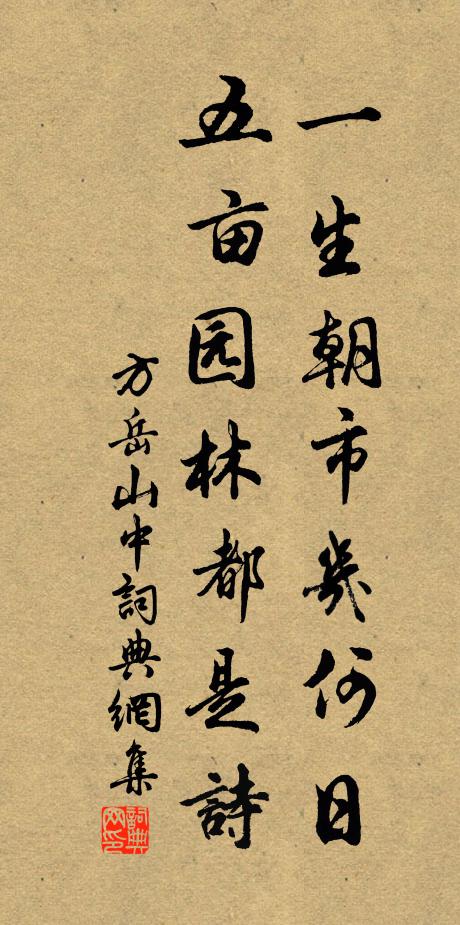 一生朝市幾何日
五亩园林都是詩
方岳山中詞典網集
詞典网印